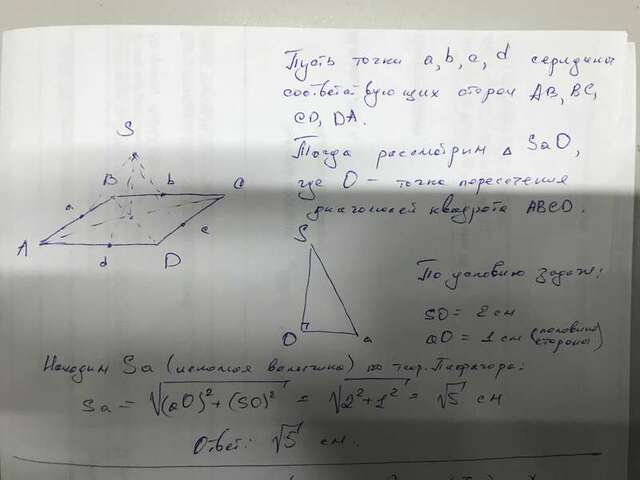 S
A
a
B
b
C
d
D
c
Пусть точки a, b, c, d середины
соответствующих сторон AB, BC,
CD, DA.
Тогда рассмотрим Δ SaO,
где O - точка пересечения
диагоналей квадрата ABCD.
S
O
a
По условию задачи:
SO = 2 см
aO = 1 см (половина
стороны)
Находим Sa (искомая величина) по теор. Пифагора:
Sa = √(aO)² + (SO)² = √2² + 1² = √5 см
Ответ: √5 см.